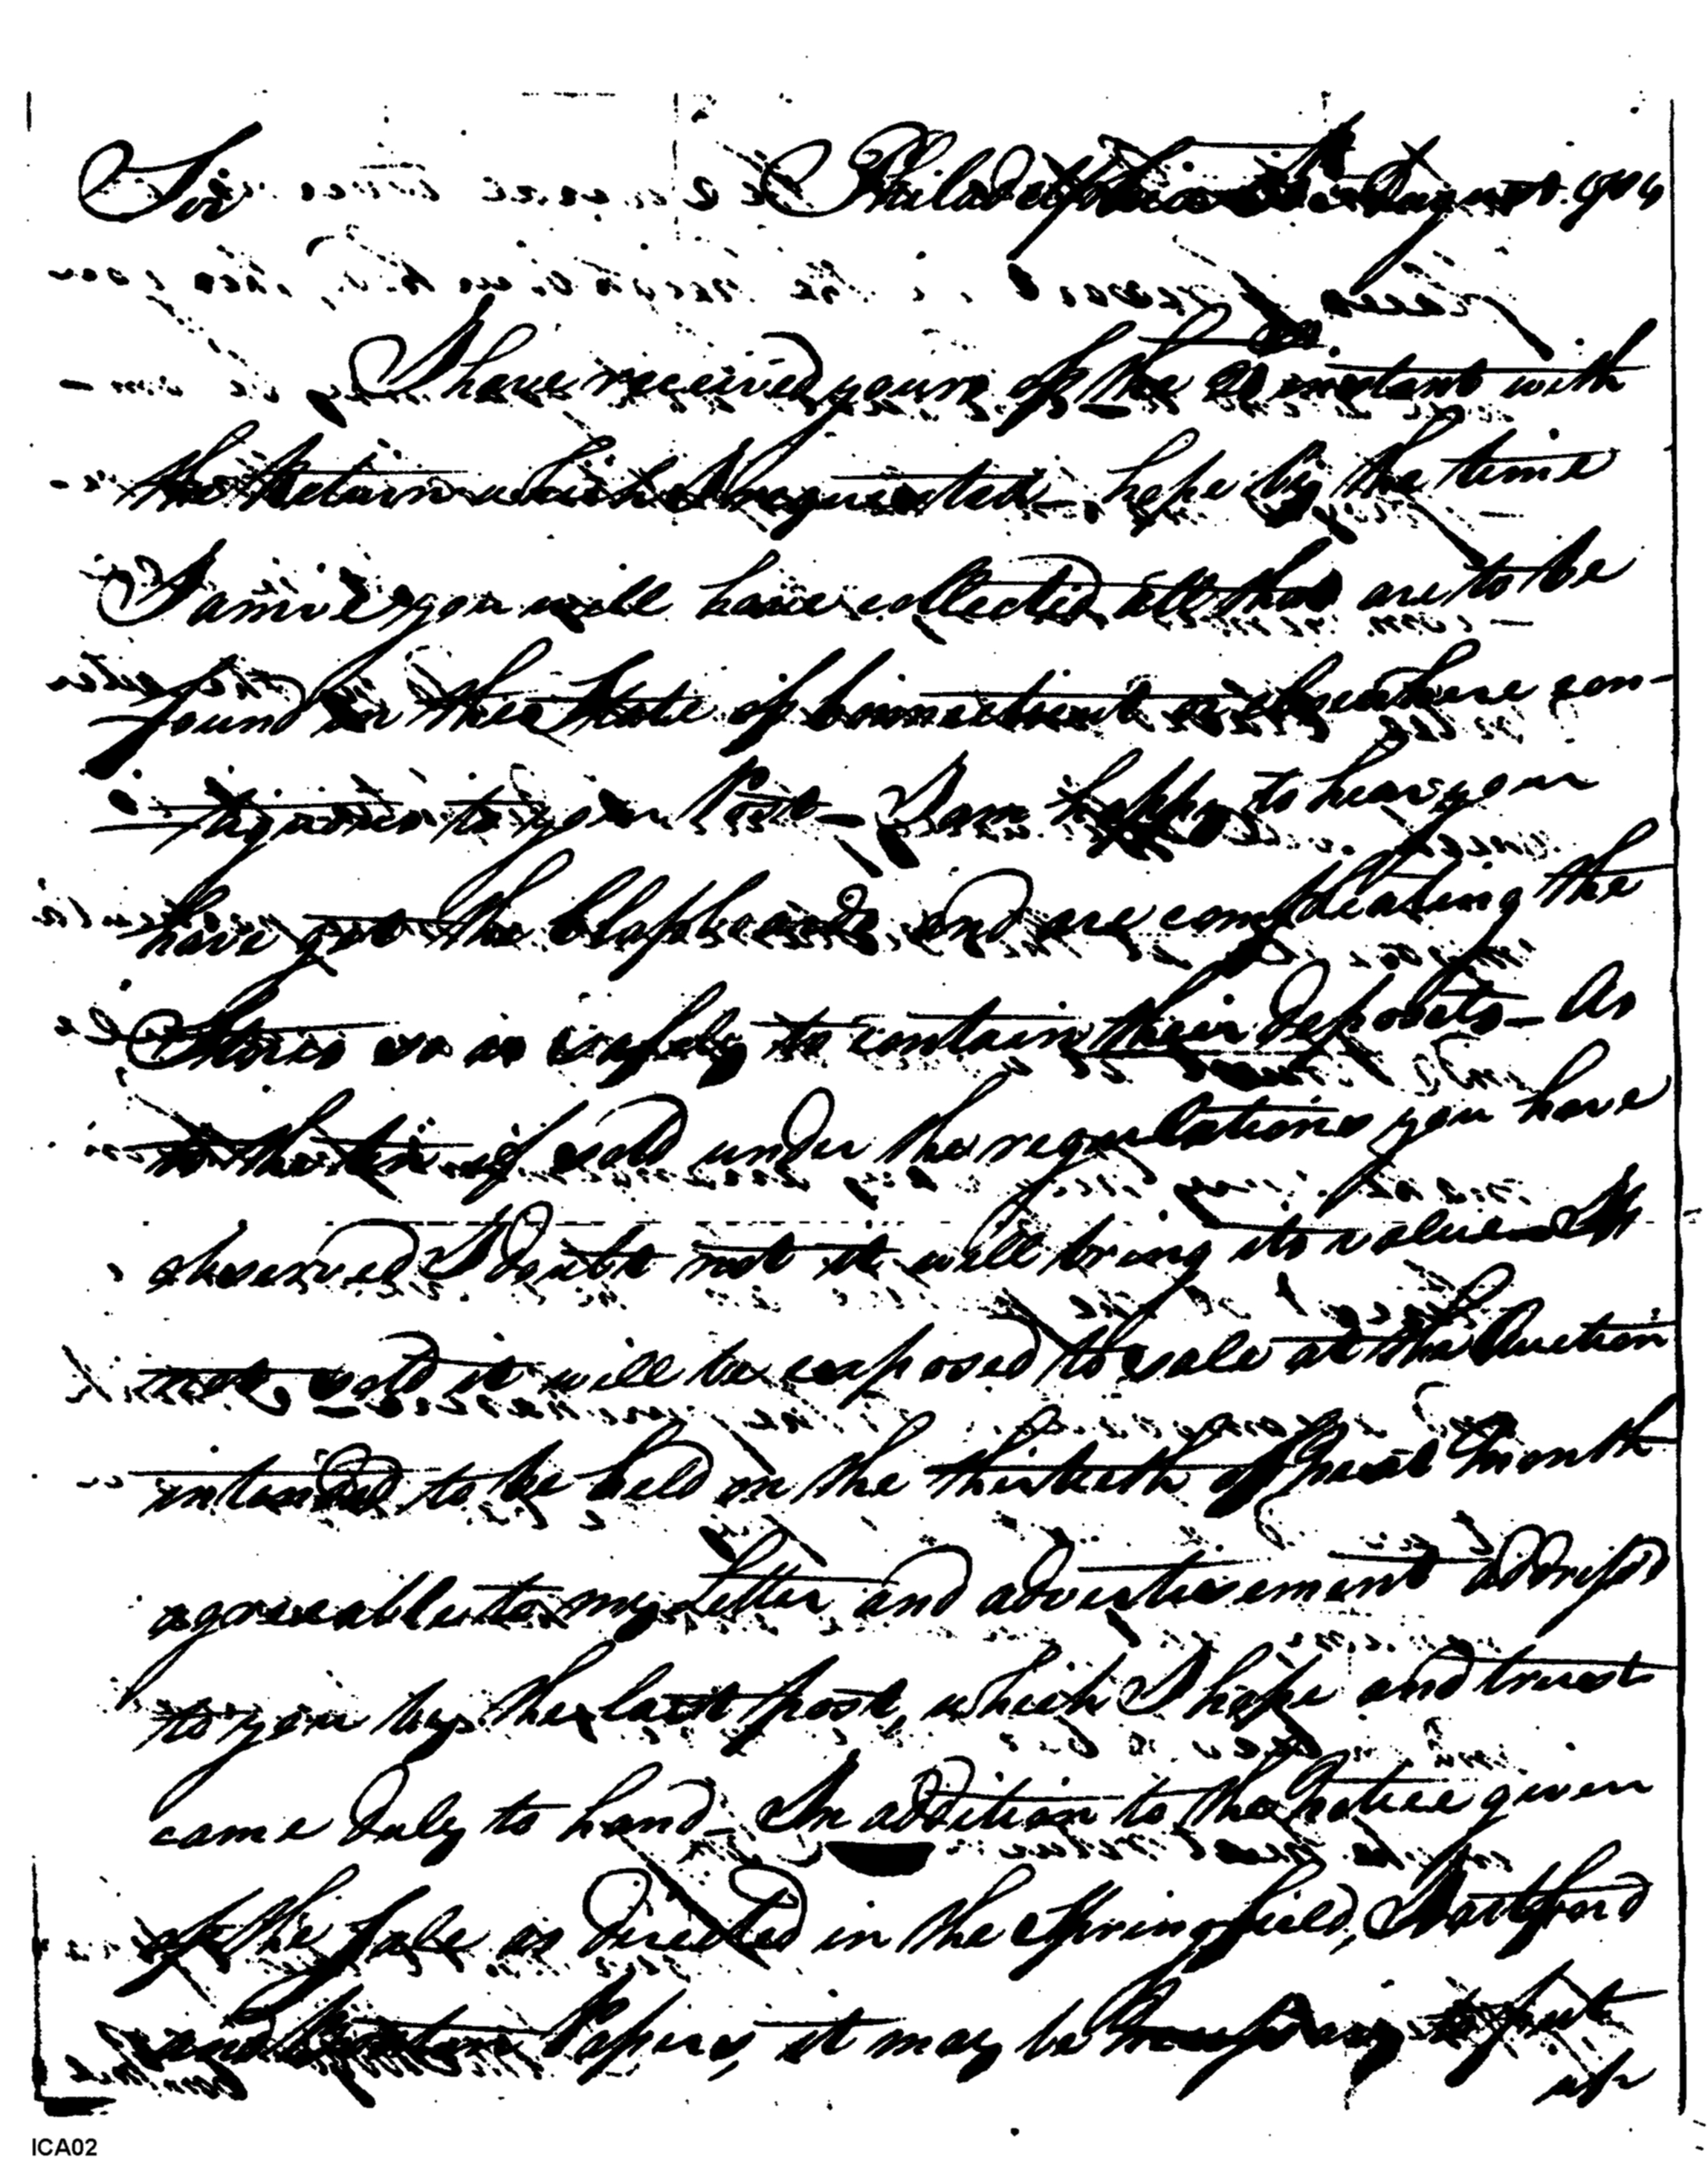 Sir Philadelphia August
I have received yours of the instant with
the Return which I requested – hope by the time
I arrive you will have collected all that are to be
found in the State of Connecticut or elsewhere con-
tiguous to your Post – I am happy to hear you
have got the Clapboards and are compleating the
Stores so as safely to contain their deposits – As
to the tin if sold under the regulations you have
observed I doubt not it will bring its value – If
not sold it will be exposed to sale at the Auction
intended to be held on the thirtieth of next Month
agreeable to my Letter and advertisement address'd
to you by the last post, which I hope and trust
came duly to hand – In addition to the notice given
of the Sale as directed in the Springfield, Hartford
and Boston Papers, it may be necessary to put
up
ICA02